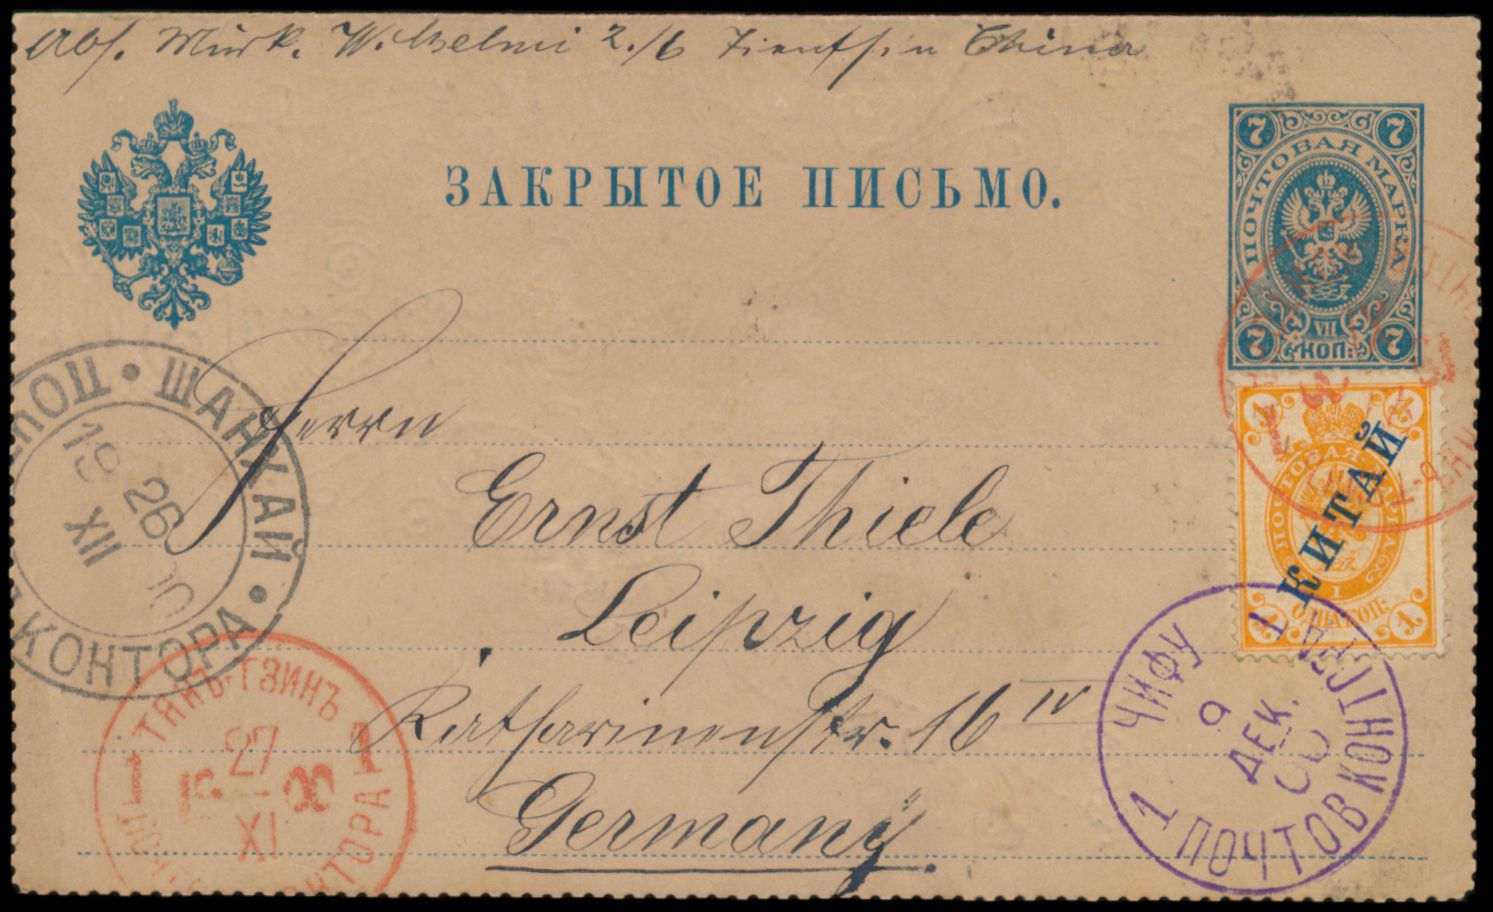 Abs. Wilhelmi 2./6 Tientsin China
ЗАКРЫТОЕ ПИСЬМО.
7 7
ПОЧТОВАЯ МАРКА
VII
7 КОП: 7
1 1
ПОЧТОВАЯ МАРКА
КИТАЙ
I
1 ОДНА КОП: 1
Herrn
Ernst Thiele
Leipzig
Katharinenstr. 16 IV
Germany.
ШАНХАЙ
19 26 00
XII
КОНТОРА
ТЯНЬ-ТЗИНЪ
1 27 1
19 00
XI
КОНТОРА
ЧИФУ
9
ДЕК.
00
1 ПОЧТОВ КОНТОРА 1